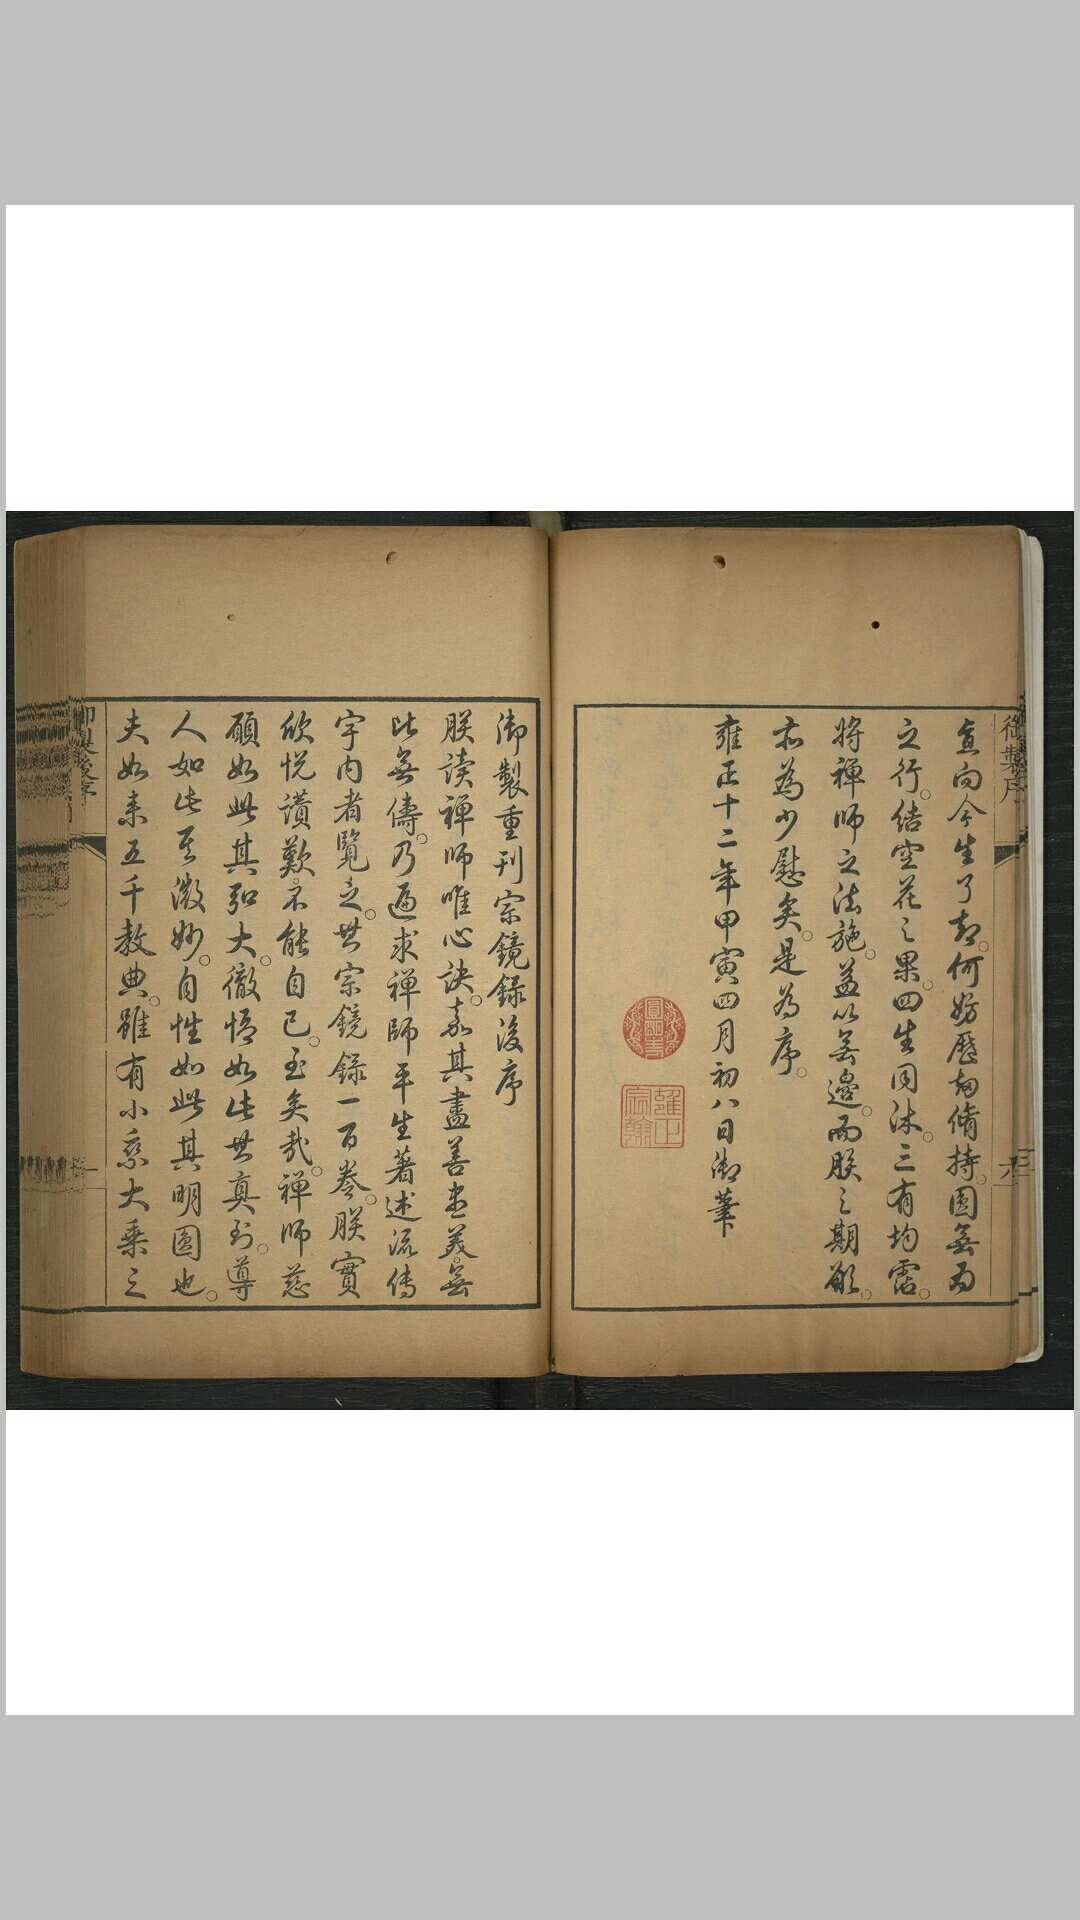 御製序
直向今生了却。何妨歷劫脩持。圓無為
之行。結空花之果。四生同沐。三有均霑。
將禪師之法施。益以無邊。而朕之期願。
亦為少慰矣。是為序。
雍正十二年甲寅四月初八日御筆
雍正宸翰
御製重刊宗鏡錄後序
朕讀禪師唯心訣。嘉其盡善盡美。無
比無儔。乃遍求禪師平生著述流傳
宇內者覽之。其宗鏡錄一百卷。朕實
欣悅讚歎。不能自已。至矣哉。禪師慈
願如此其弘大。徹悟如此其真到。導
人如此其微妙。自性如此其明圓也。
夫如來五千教典。雖有小乘大乘之
御製後序